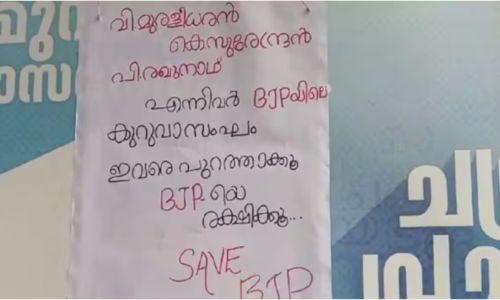 വി.മുരളീധരൻ
കെ.സുരേന്ദ്രൻ
പി.രഘുനാഥ്
എന്നിവർ BJPയിലെ
കുറുവാസംഘം
ഇവരെ പുറത്താക്കൂ
BJP യെ
രക്ഷിക്കൂ...
SAVE
BJP